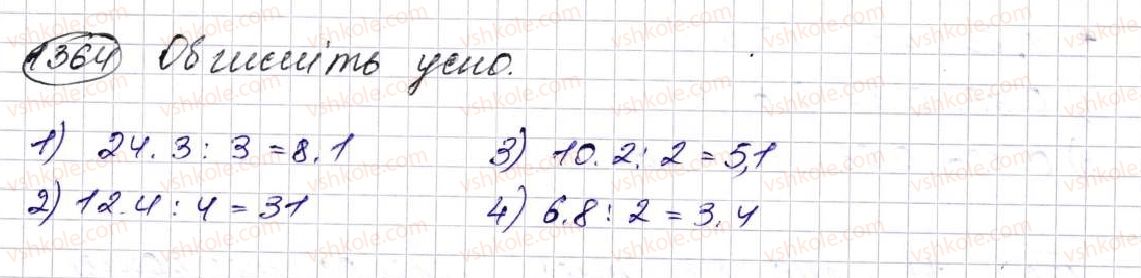 1364 Обчисліть усно.
1) 24.3 : 3 = 8.1 3) 10.2 : 2 = 5,1
2) 12.4 : 4 = 31 4) 6.8 : 2 = 3.4